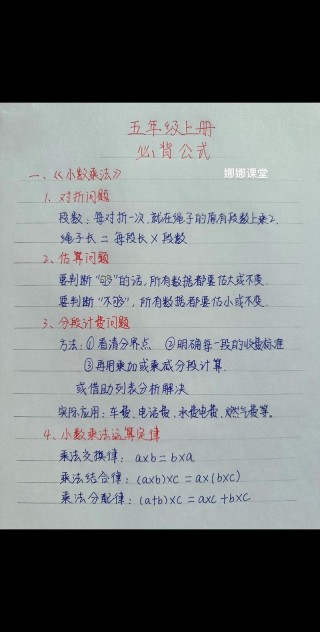 五年级上册
必背公式
一、《小数乘法》
娜娜课堂
1. 对折问题
段数：每对折一次，就在绳子的原有段数上乘2.
绳子长 = 每段长 × 段数
2、估算问题
要判断“够”的话，所有数据都要估大或不变.
要判断“不够”，所有数据都要估小或不变.
3、分段计费问题
方法：① 看清分界点 ②明确每一段的收费标准
③再用乘加或乘减分段计算.
或借助列表分析解决
实际应用：车费、电话费、水费电费、燃气费等。
4、小数乘法运算定律
乘法交换律：a×b=b×a
乘法结合律：(a×b)×c=a×(b×c)
乘法分配律：(a+b)×c=a×c+b×c